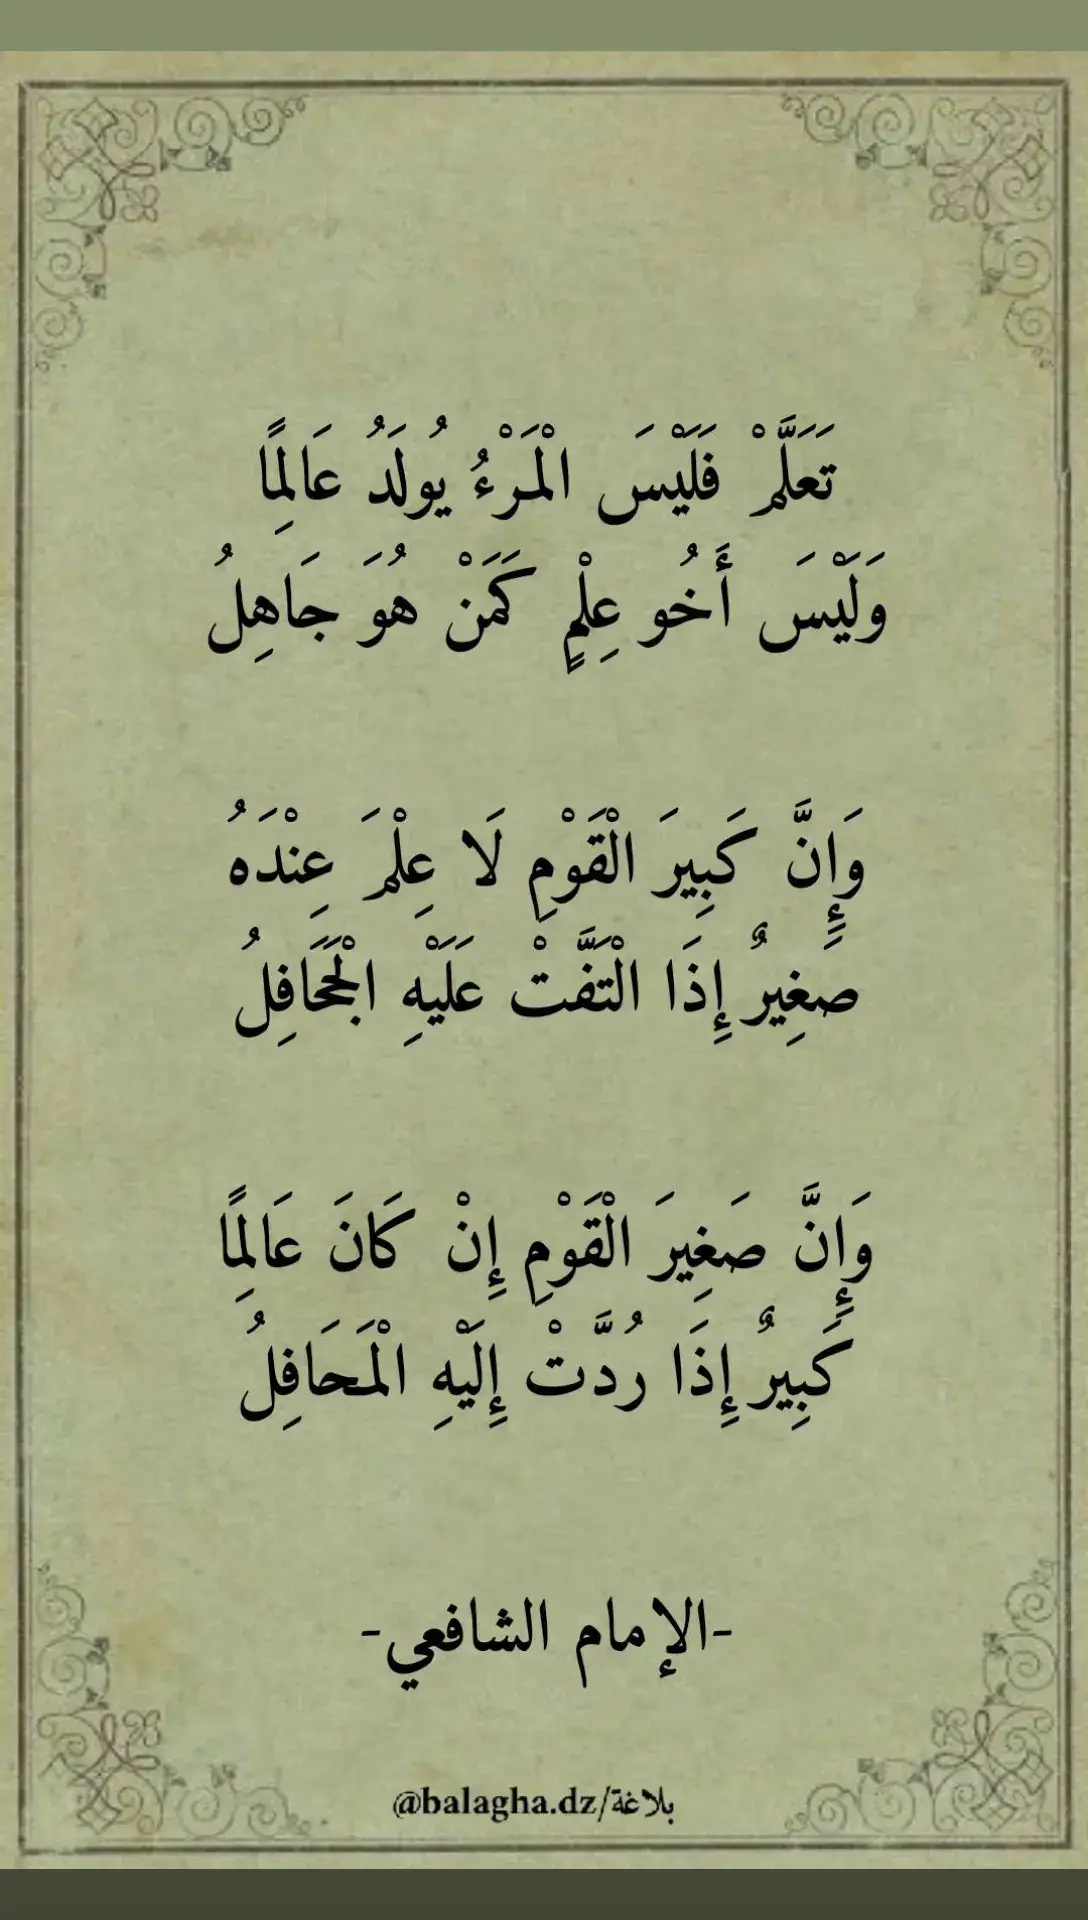 تَعَلَّمْ فَلَيْسَ الْمَرْءُ يُولَدُ عَالِمًا
وَلَيْسَ أَخُو عِلْمٍ كَمَنْ هُوَ جَاهِلُ
وَإِنَّ كَبِيرَ الْقَوْمِ لَا عِلْمَ عِنْدَهُ
صَغِيرٌ إِذَا الْتَفَّتْ عَلَيْهِ الْجَحَافِلُ
وَإِنَّ صَغِيرَ الْقَوْمِ إِنْ كَانَ عَالِمًا
كَبِيرٌ إِذَا رُدَّتْ إِلَيْهِ الْمَحَافِلُ
-الإمام الشافعي-
@balagha.dz/بلاغة